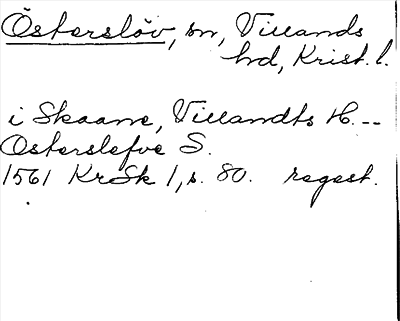 Österslöv, sn, Villands
hd, Krist. l.
i Skaane, Villandts H. --
Osterslefve S.
1561 KrSk 1, s. 80. regest.